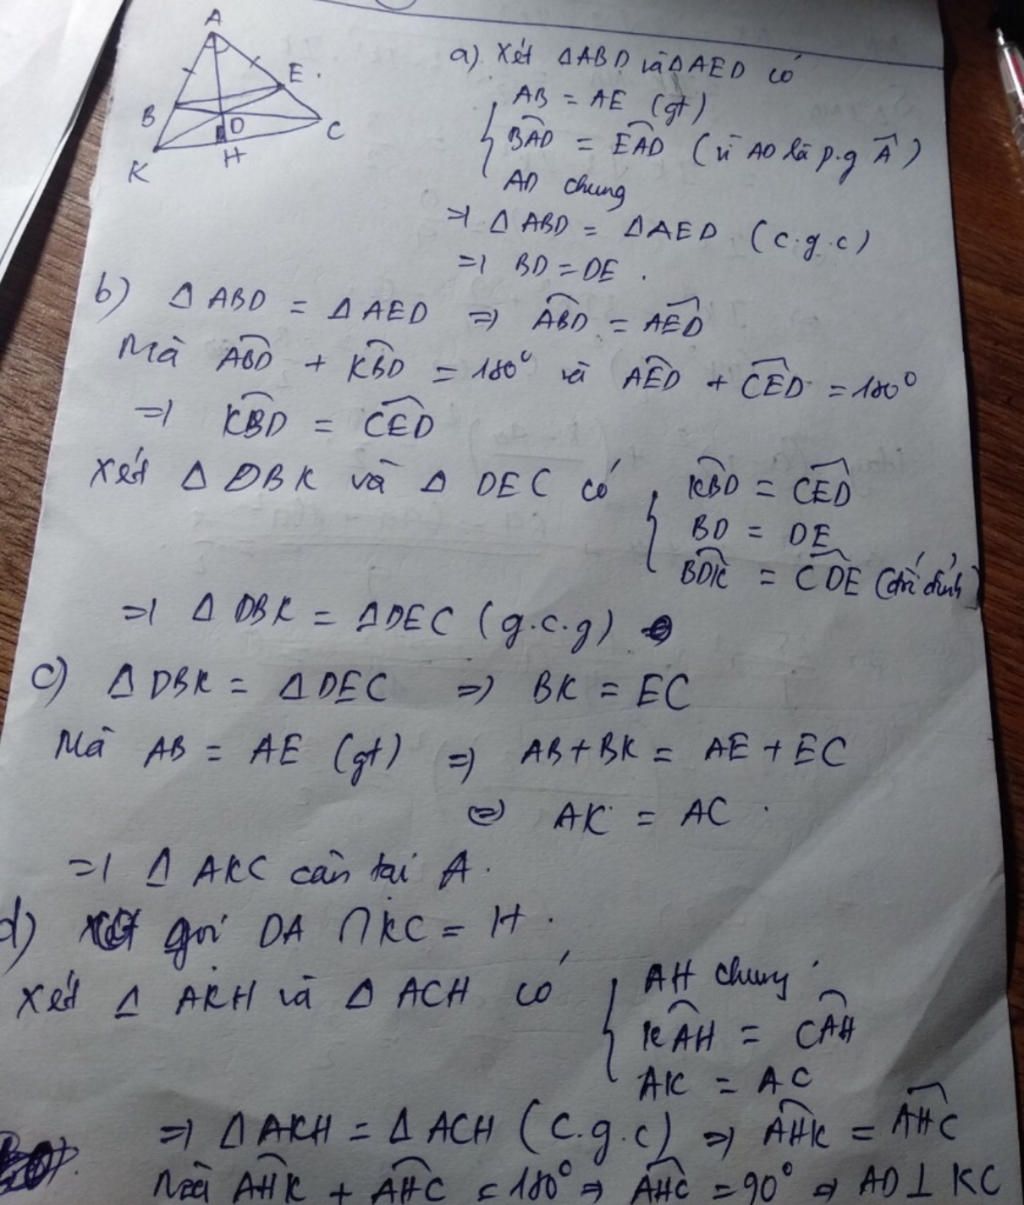 A
E
B
D
C
K
H
a) Xét ΔABD và ΔAED có
AB = AE (gt)
BAD = EAD (vì AD là p.g A)
AD chung
=> ΔABD = ΔAED (c.g.c)
=> BD = DE.
b) ΔABD = ΔAED => ABD = AED
Mà ABD + KBD = 180° và AED + CED = 180°
=> KBD = CED
Xét Δ DBK và Δ DEC có
KBD = CED
BD = DE
BDK = CDE (đối đỉnh)
=> Δ DBK = ΔDEC (g.c.g)
c) ΔDBK = ΔDEC => BK = EC
Mà AB = AE (gt) => AB + BK = AE + EC
<=> AK = AC.
=> Δ AKC cân tại A.
d) gọi DA ∩ KC = H.
Xét Δ AKH và Δ ACH có
AH chung
KAH = CAH
AK = AC
=> ΔAKH = ΔACH (c.g.c) => AHK = AHC
Mà AHK + AHC = 180° => AHC = 90° => AD ⊥ KC